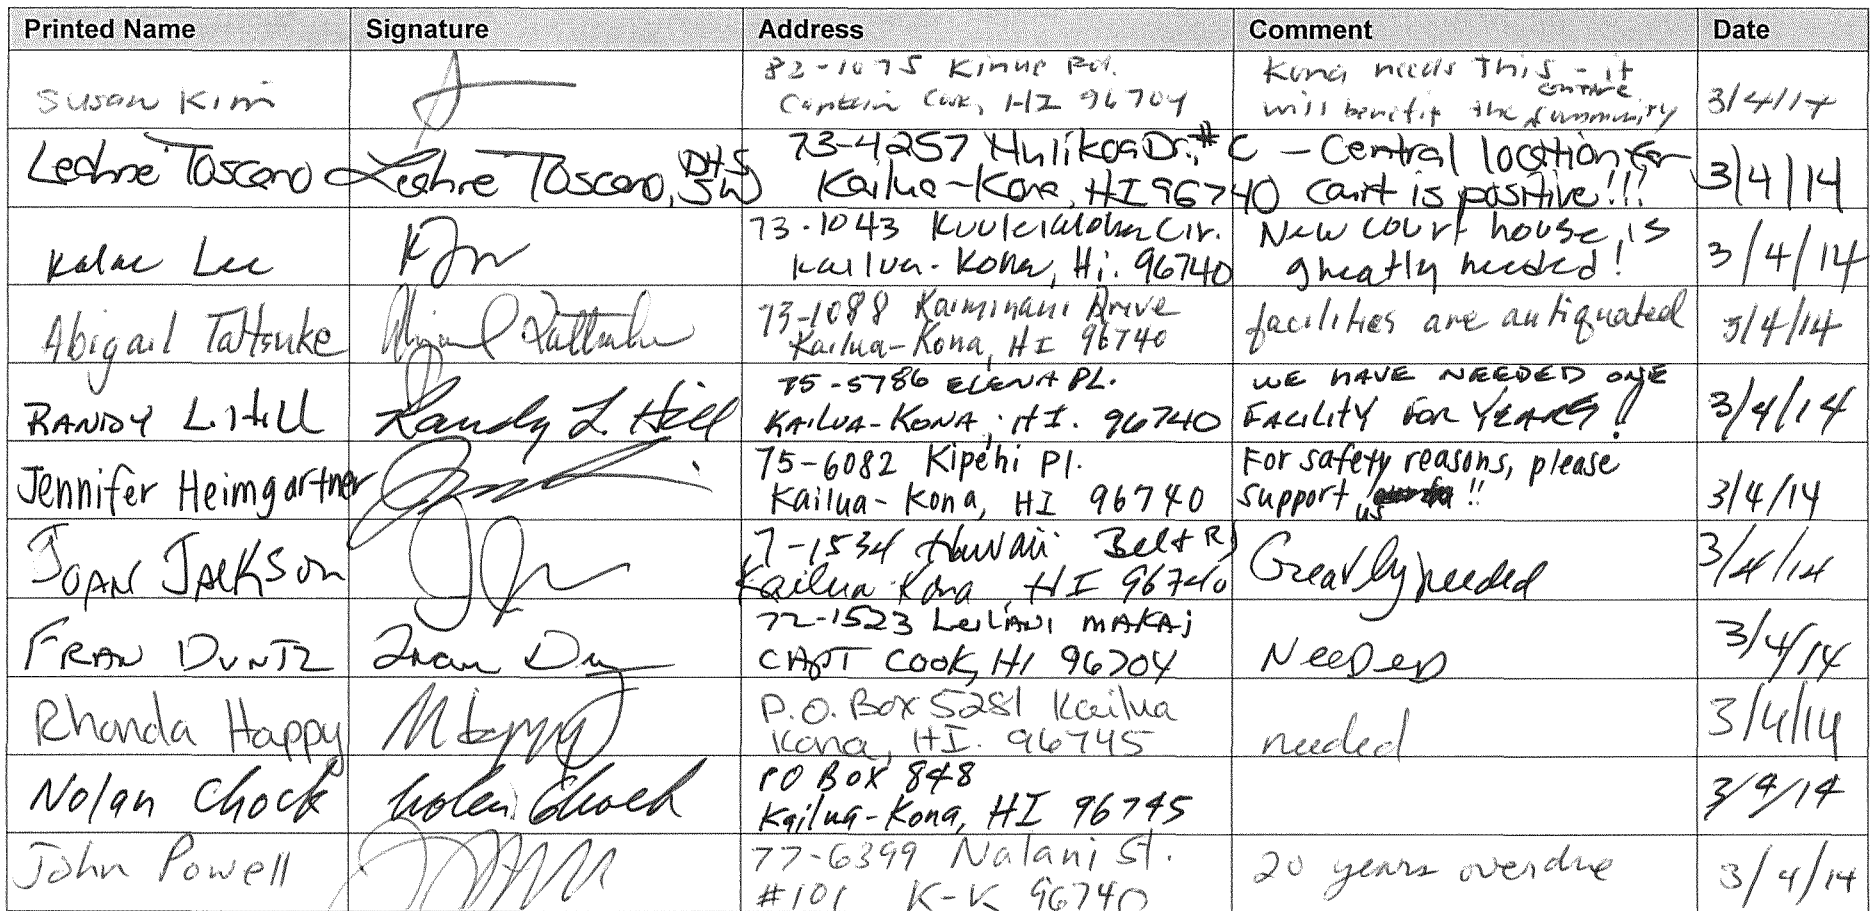 Printed Name Signature Address Comment Date
Susan Kim 82-1075 Kinue Rd. Captain Cook, HI 96704 Kona needs this - it will benefit the entire community 3/4/14
Leahne Toscano Leahne Toscano, DHS SW 73-4257 Hulikoa Dr. #C Kailua-Kona, HI 96740 - Central location for court is positive!!! 3/4/14
Kalae Lee 73-1043 Kuuleialoha Cir. Kailua-Kona, Hi. 96740 New court house is greatly needed! 3/4/14
Abigail Tattsuke 73-1088 Kaiminani Drive Kailua-Kona, HI 96740 facilities are antiquated 3/4/14
RANDY L. HILL Randy L. Hill 75-5786 ELENA PL. KAILUA-KONA, HI. 96740 WE HAVE NEEDED ONE FACILITY FOR YEARS! 3/4/14
Jennifer Heimgartner 75-6082 Kipehi Pl. Kailua-Kona, HI 96740 For safety reasons, please support us !! 3/4/14
JOAN JACKSON 7-1534 Hawaii Belt Rd Kailua Kona, HI 96740 Greatly needed 3/4/14
FRAN DUNTZ Fran 72-1523 LEILANI MAKAI CAPT COOK, HI 96704 NeeDeD 3/4/14
Rhonda Happy P.O. Box 5281 Kailua Kona, HI. 96745 needed 3/4/14
Nolan Chock Nolan Chock PO BOX 848 Kailua-Kona, HI 96745 3/4/14
John Powell 77-6399 Nalani St. #101 K-K 96740 20 years overdue 3/4/14